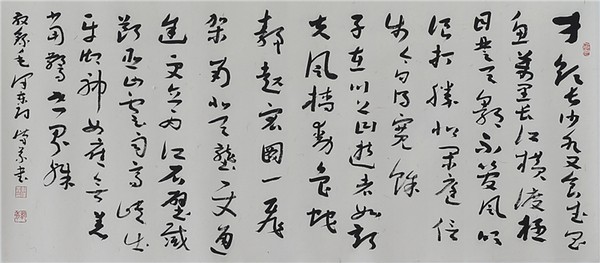 才饮长沙水又食武昌
鱼万里长江横渡极
目楚天舒不管风吹
浪打胜似闲庭信
步今日得宽馀
子在川上曰逝者如斯
夫风樯动龟蛇
静起宏图一飞
架南北天堑变通
途更立西江石壁截
断巫山云雨高峡出
平湖神女应无恙
当惊世界殊
毛泽东词 书